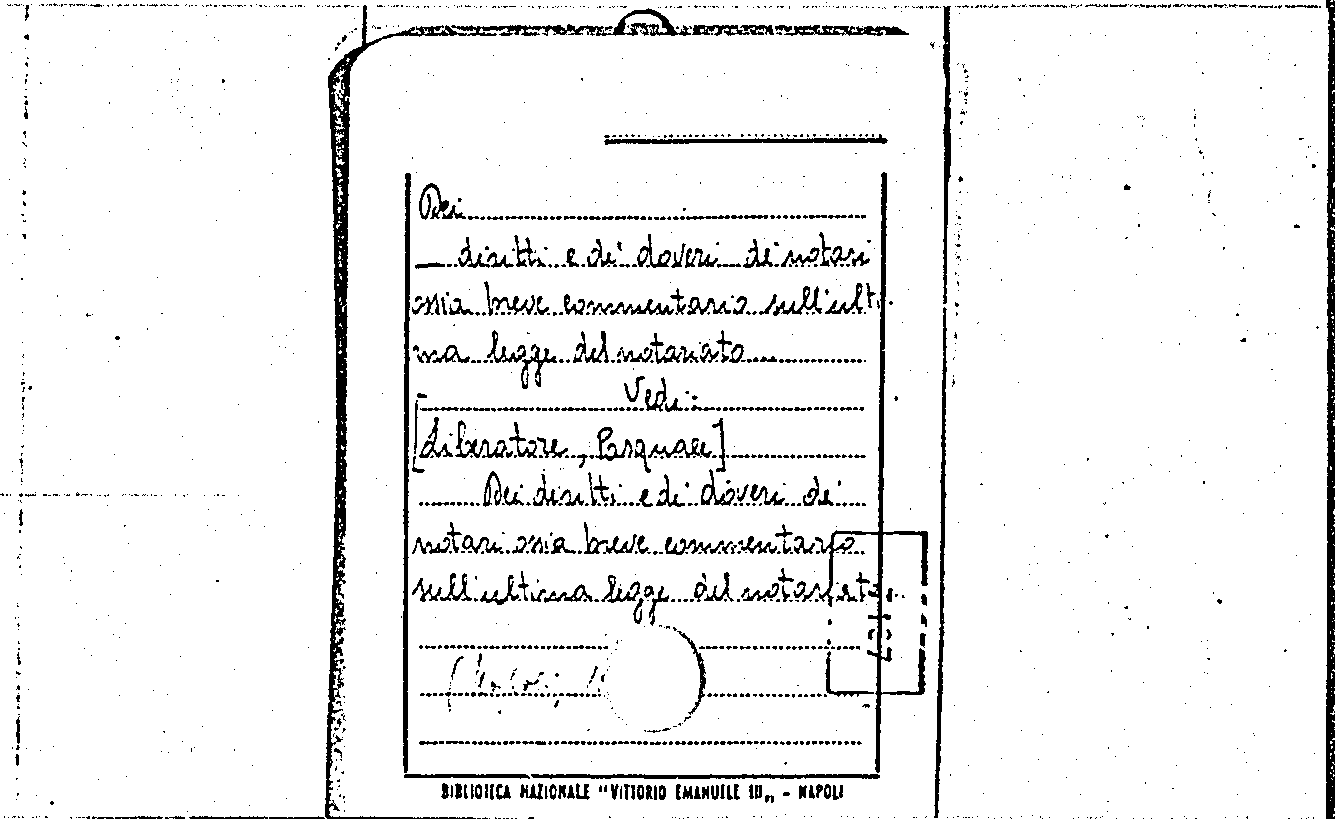 Dei
— diritti e de' doveri de' notari
ossia breve commentario sull'ulti
ma legge del notariato...
Vedi:
[Liberatore, Pasquale]
Dei diritti e de' doveri de'
notari ossia breve commentario
sull'ultima legge del notariato..
(Napoli,
BIBLIOTECA NAZIONALE "VITTORIO EMANUELE III„ - NAPOLI